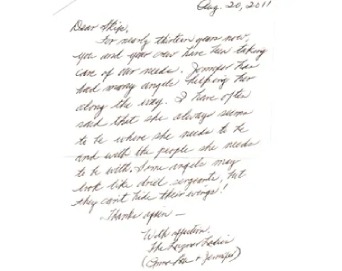 Aug. 20, 2011
Dear Skip,
For nearly thirteen years now,
you and your crew have been taking
care of our needs. Jennifer has
had many angels helping her
along the way. I have often
said that she always seems
to be where she needs to be
and with the people she needs
to be with. Some angels may
look like drill sergeants, but
they can't hide their wings!
Thanks again —
With affection,
The Ladies
( + Jennifer)